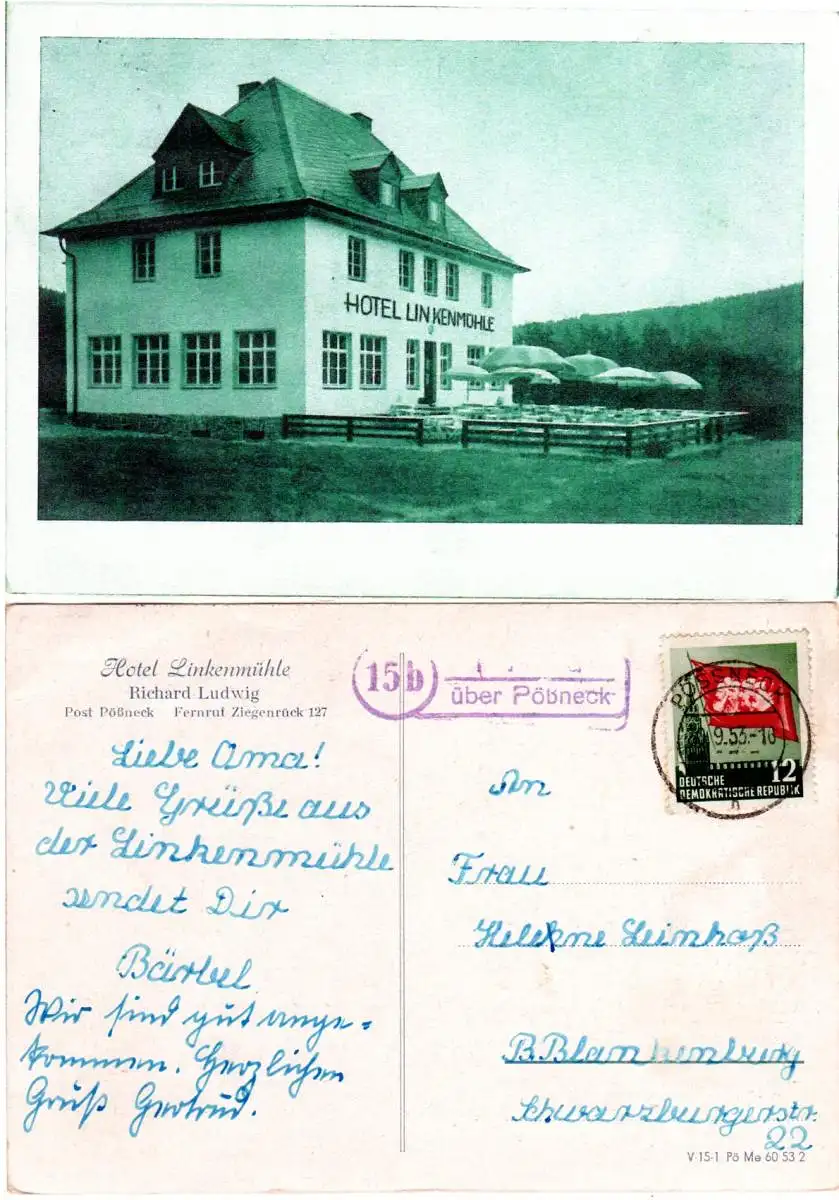 HOTEL LINKENMÜHLE
Hotel Linkenmühle
Richard Ludwig
Post Pößneck Fernruf Ziegenrück 127
15b
über Pößneck
PÖSSNECK
9.53.-16
DEUTSCHE
DEMOKRATISCHE REPUBLIK
12
Liebe Oma!
Viele Grüße aus
der Linkenmühle
sendet Dir
Bärbel
Wir sind gut ange-
kommen. Herzlichen
Gruß Gertrud.
An
Frau
Helene Leinhaß
B.Blankenburg
Schwarzburgerstr.
22
V-15-1 Pö Me 60 53 2